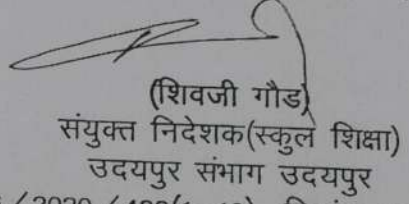 (शिवजी गौड)
संयुक्त निदेशक(स्कुल शिक्षा)
उदयपुर संभाग उदयपुर